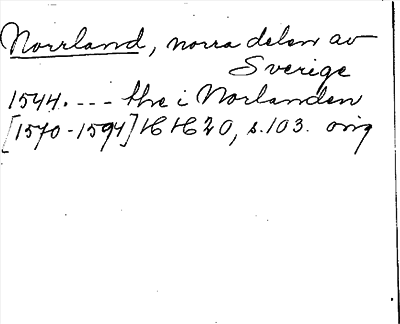 Norrland, norra delen av
Sverige
1544. --- the i Norlanden
[1570-1594] HH20, s.103. orig